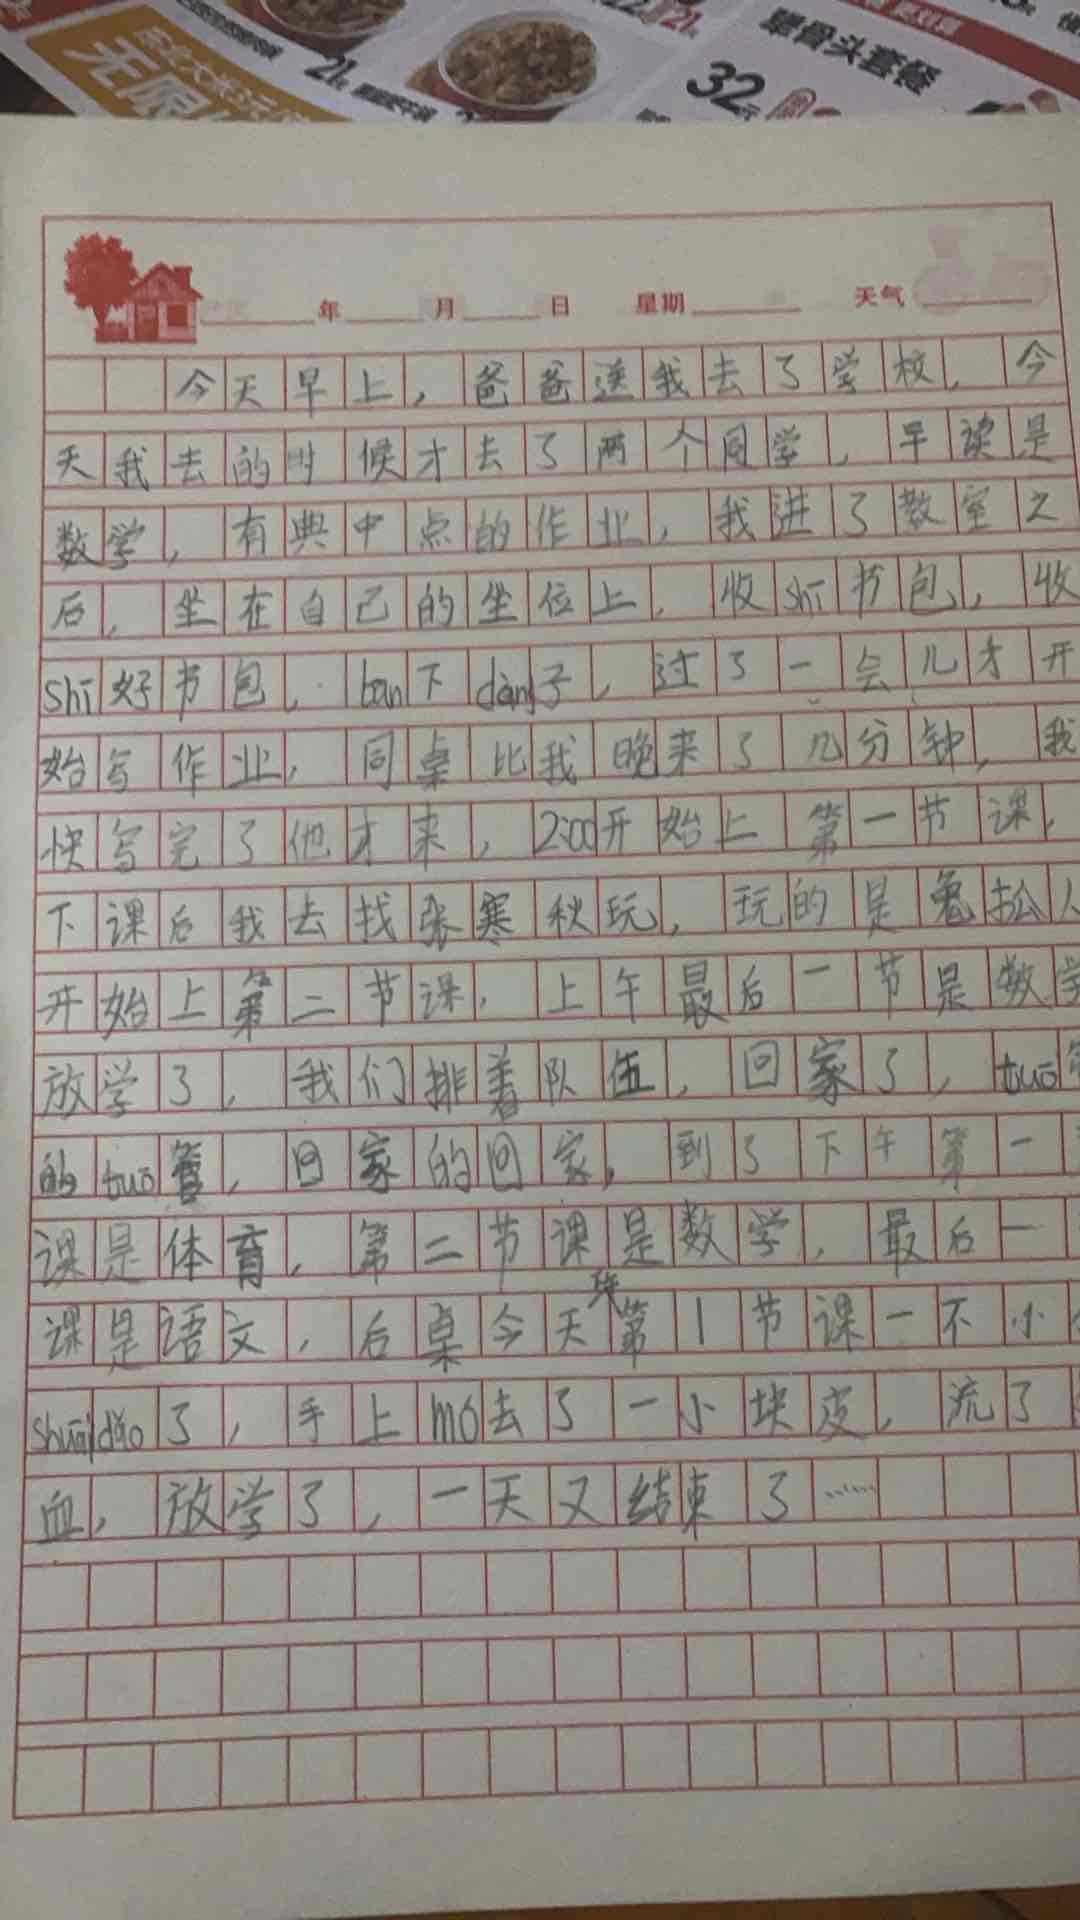 无限
21元
32元
骨头套餐
年 月 日 星期 天气
今天早上，爸爸送我去了学校，今
天我去的时候才去了两个同学，早读是
数学，有典中点的作业，我进了教室之
后，坐在自己的坐位上，收shí书包，收
shí好书包，ban下dèng子，过了一会儿才开
始写作业，同桌比我晚来了几分钟，我
快写完了他才来，2:00开始上第一节课，
下课后我去找张寒秋玩，玩的是 人
开始上第二节课，上午最后一节是数学
放学了，我们排着队伍，回家了，tuō管
的tuō管，回家的回家，到了下午第一
课是体育，第二节课是数学，最后一
课是语文，后桌今天第1节课一不小
shuāidǎo了，手上mó去了一小块皮，流了
血，放学了，一天又结束了……